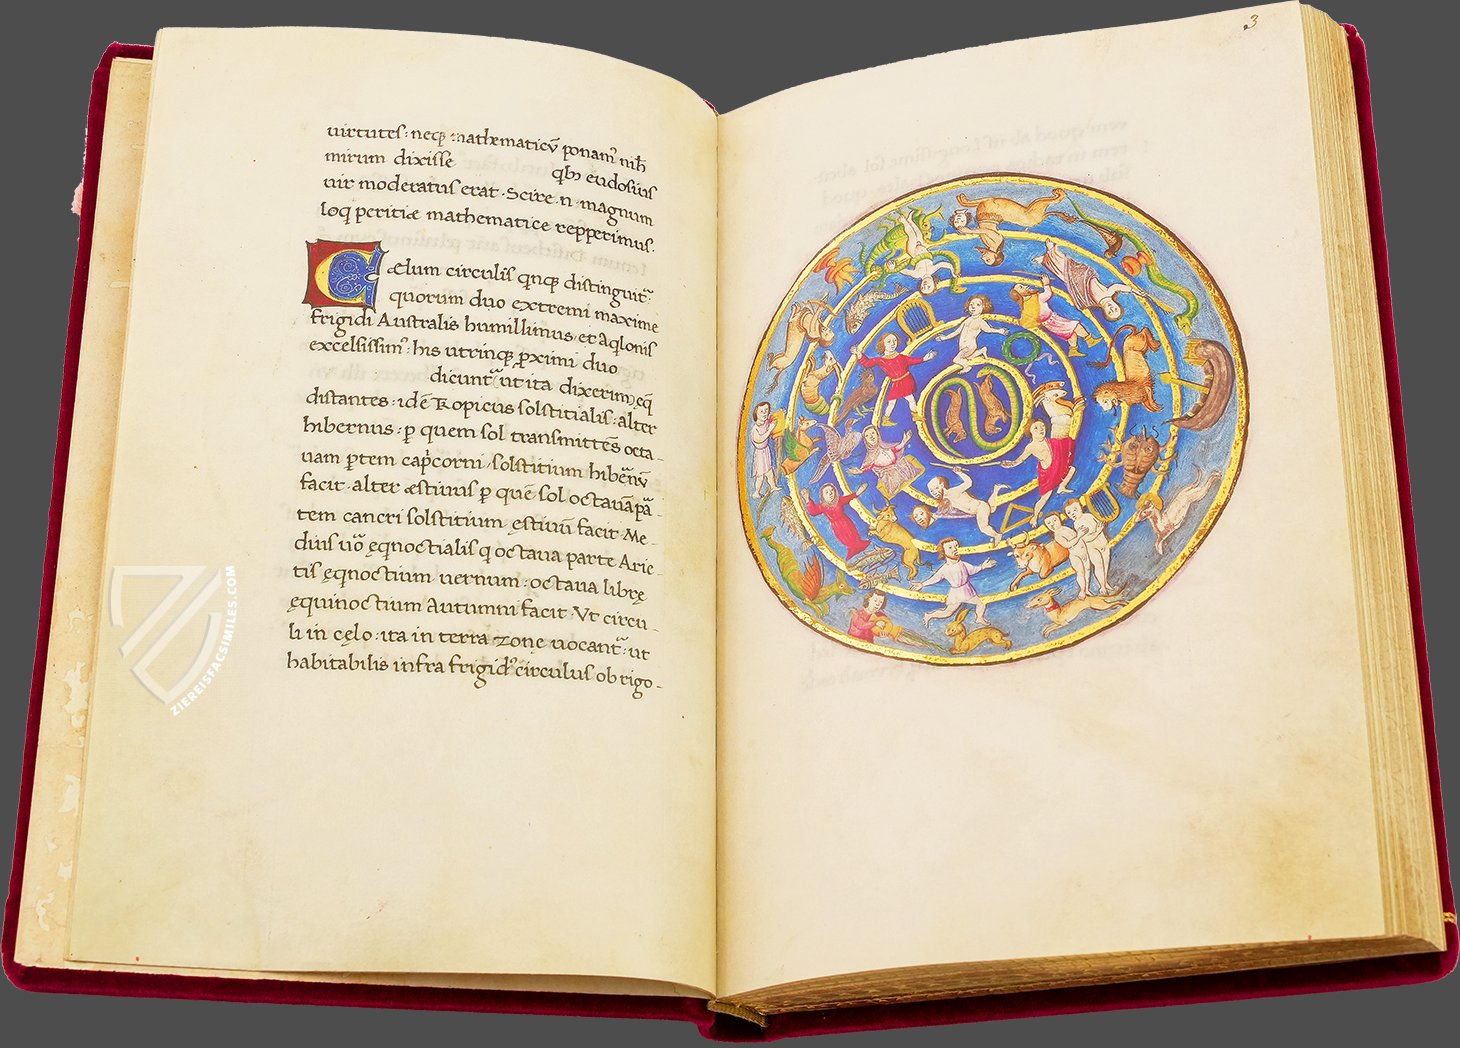 uirtutes: neq; mathematicū ponam᷒ nih̄
mirum dixisse qḃ eudosius
uir moderatus erat. Scire .n. magnum
loq peritiæ mathematice repperimus.
Cælum circulis qnq; distinguit᷒:
quorum duo extremi maxime
frigidi Australis humillimus, et Aqlonis
excelsissim᷒: his utrinq; ꝑximi duo
dicunt᷒ ut ita dixerim, eq̄
distantes: idē Tropicus solstitialis: alter
hibernus: ꝑ quem sol transmittēs octa-
uam ꝑtem cap̄corni, solstitium hibernū
facit. alter æstiuus ꝑ quē sol octauā pa-
tem cancri solstitium, ęstiuū facit. Me-
dius uō ęqnoctialis q octaua parte Arie-
tis ęqnoctium uernum: octaua librę
ęquinoctium Autumni facit. Vt circu-
li in cęlo: ita in terra zone uocant᷒: ut
habitabilis infra frigid᷒ circulus ob rigo-
3
ZIEREISFACSIMILES.COM